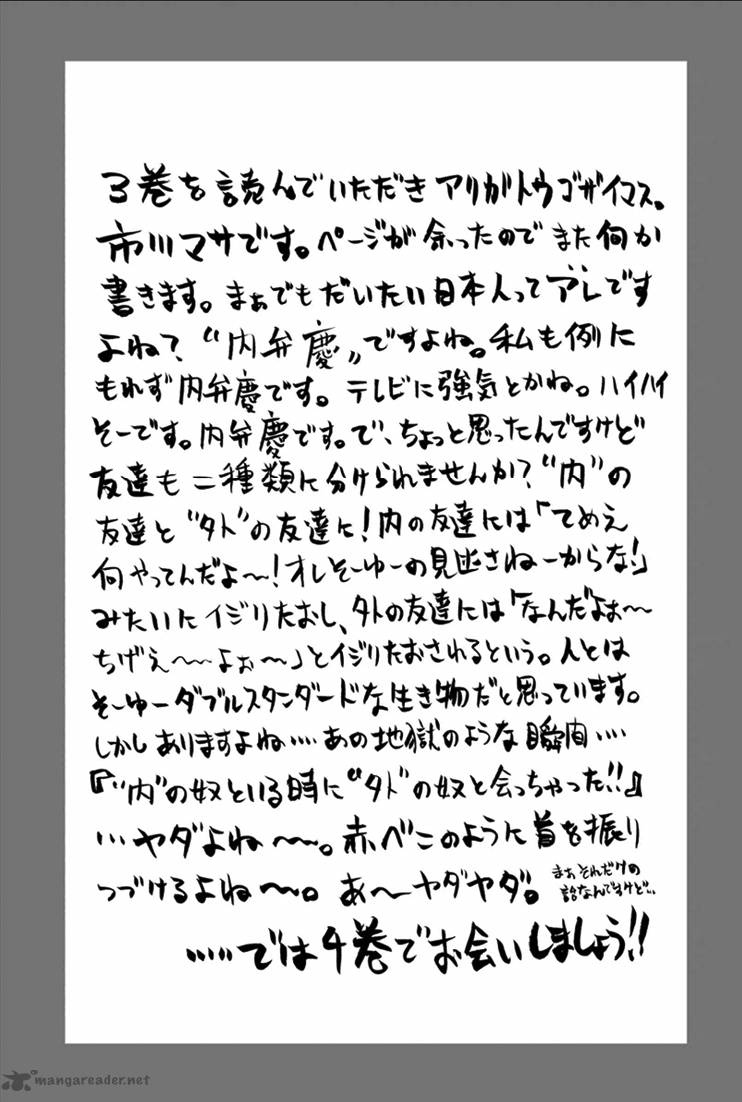 3巻を読んでいただきアリガトウゴザイマス。
市川マサです。ページが余ったのでまた何か
書きます。まぁでもだいたい日本人ってアレです
よね？“内弁慶”ですよね。私も例に
もれず内弁慶です。テレビに強気とかね。ハイハイ
そーです。内弁慶です。で、ちょっと思ったんですけど
友達も二種類に分けられませんか？“内”の
友達と“外”の友達に！内の友達には「てめえ
何やってんだよ～！オレそーゆーの見逃さねーからな！」
みたいにイジりたおし、外の友達には「なんだよぉ～
ちげぇ～～よぉ～」とイジりたおされるという。人とは
そーゆーダブルスタンダードな生き物だと思っています。
しかしありますよね‥‥あの地獄のような瞬間‥‥
『“内”の奴といる時に“外”の奴と会っちゃった！！』
‥ヤダよね～～。赤べこのように首を振り
つづけるよね～～。あ～ヤダヤダ。
まぁそれだけの
話なんですけど‥
‥‥‥では4巻でお会いしましょう！！
mangareader.net